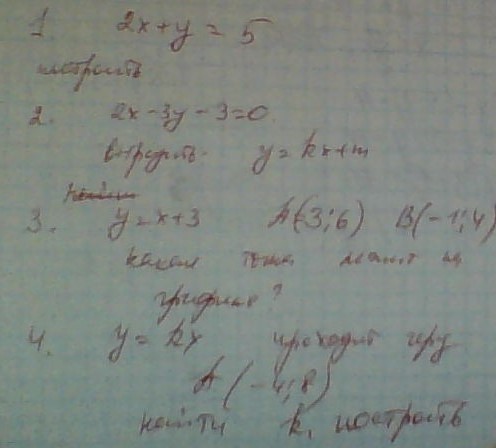 1 2x+y = 5
построить
2. 2x-3y-3=0.
выразить y=kx+m
найти
3. y=x+3 A(-3;6) B(-1;4)
какая точка лежит на
графике?
4. y=kx проходит через
A (-4;8)
найти k, построить